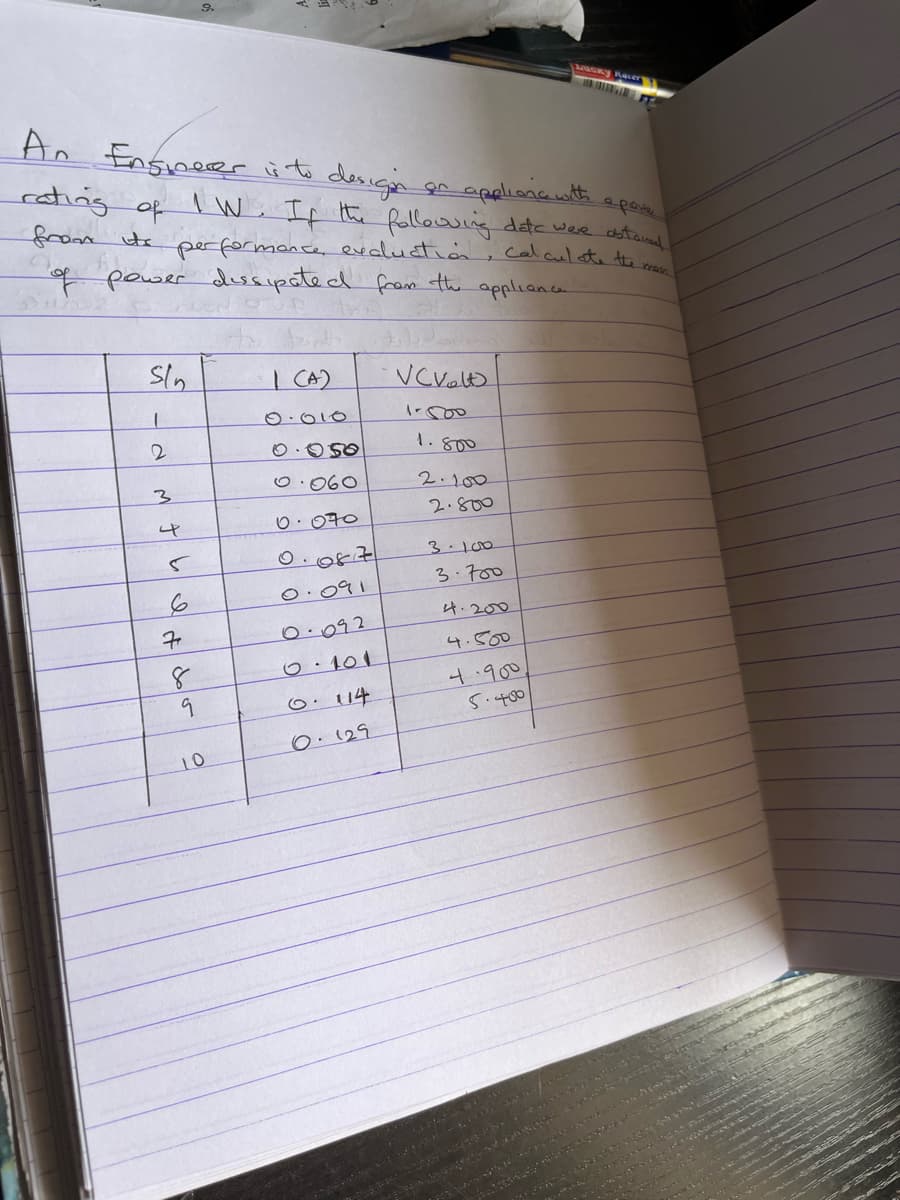 An Engineer is to design an appliance with a power
rating of 1 W. If the following data were obtained
from its performance evaluation, calculate the
of power dissipated from the appliance
S/n I (A) V(Volt)
1 0.010 1.500
2 0.050 1.800
3 0.060 2.100
4 0.070 2.800
5 0.087 3.100
6 0.091 3.700
7 0.092 4.200
8 0.101 4.500
9 0.114 4.900
10 0.129 5.400
Lucky Racer